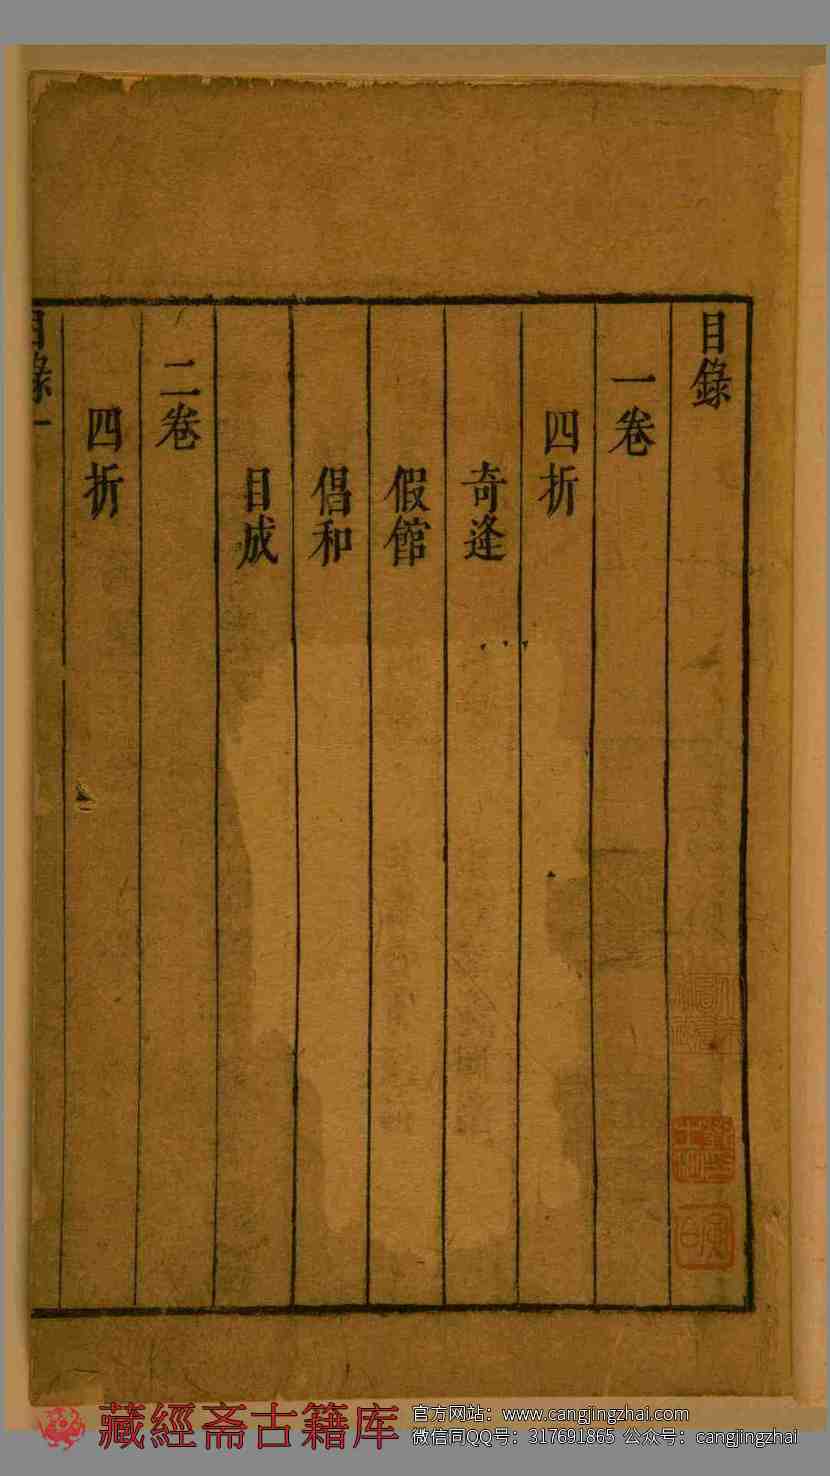 目錄
一卷
四折
奇逢
假館
倡和
目成
二卷
四折
目錄一
藏經斋古籍库
官方网站：www.cangjingzhai.com
微信同QQ号：317691865 公众号：cangjingzhai